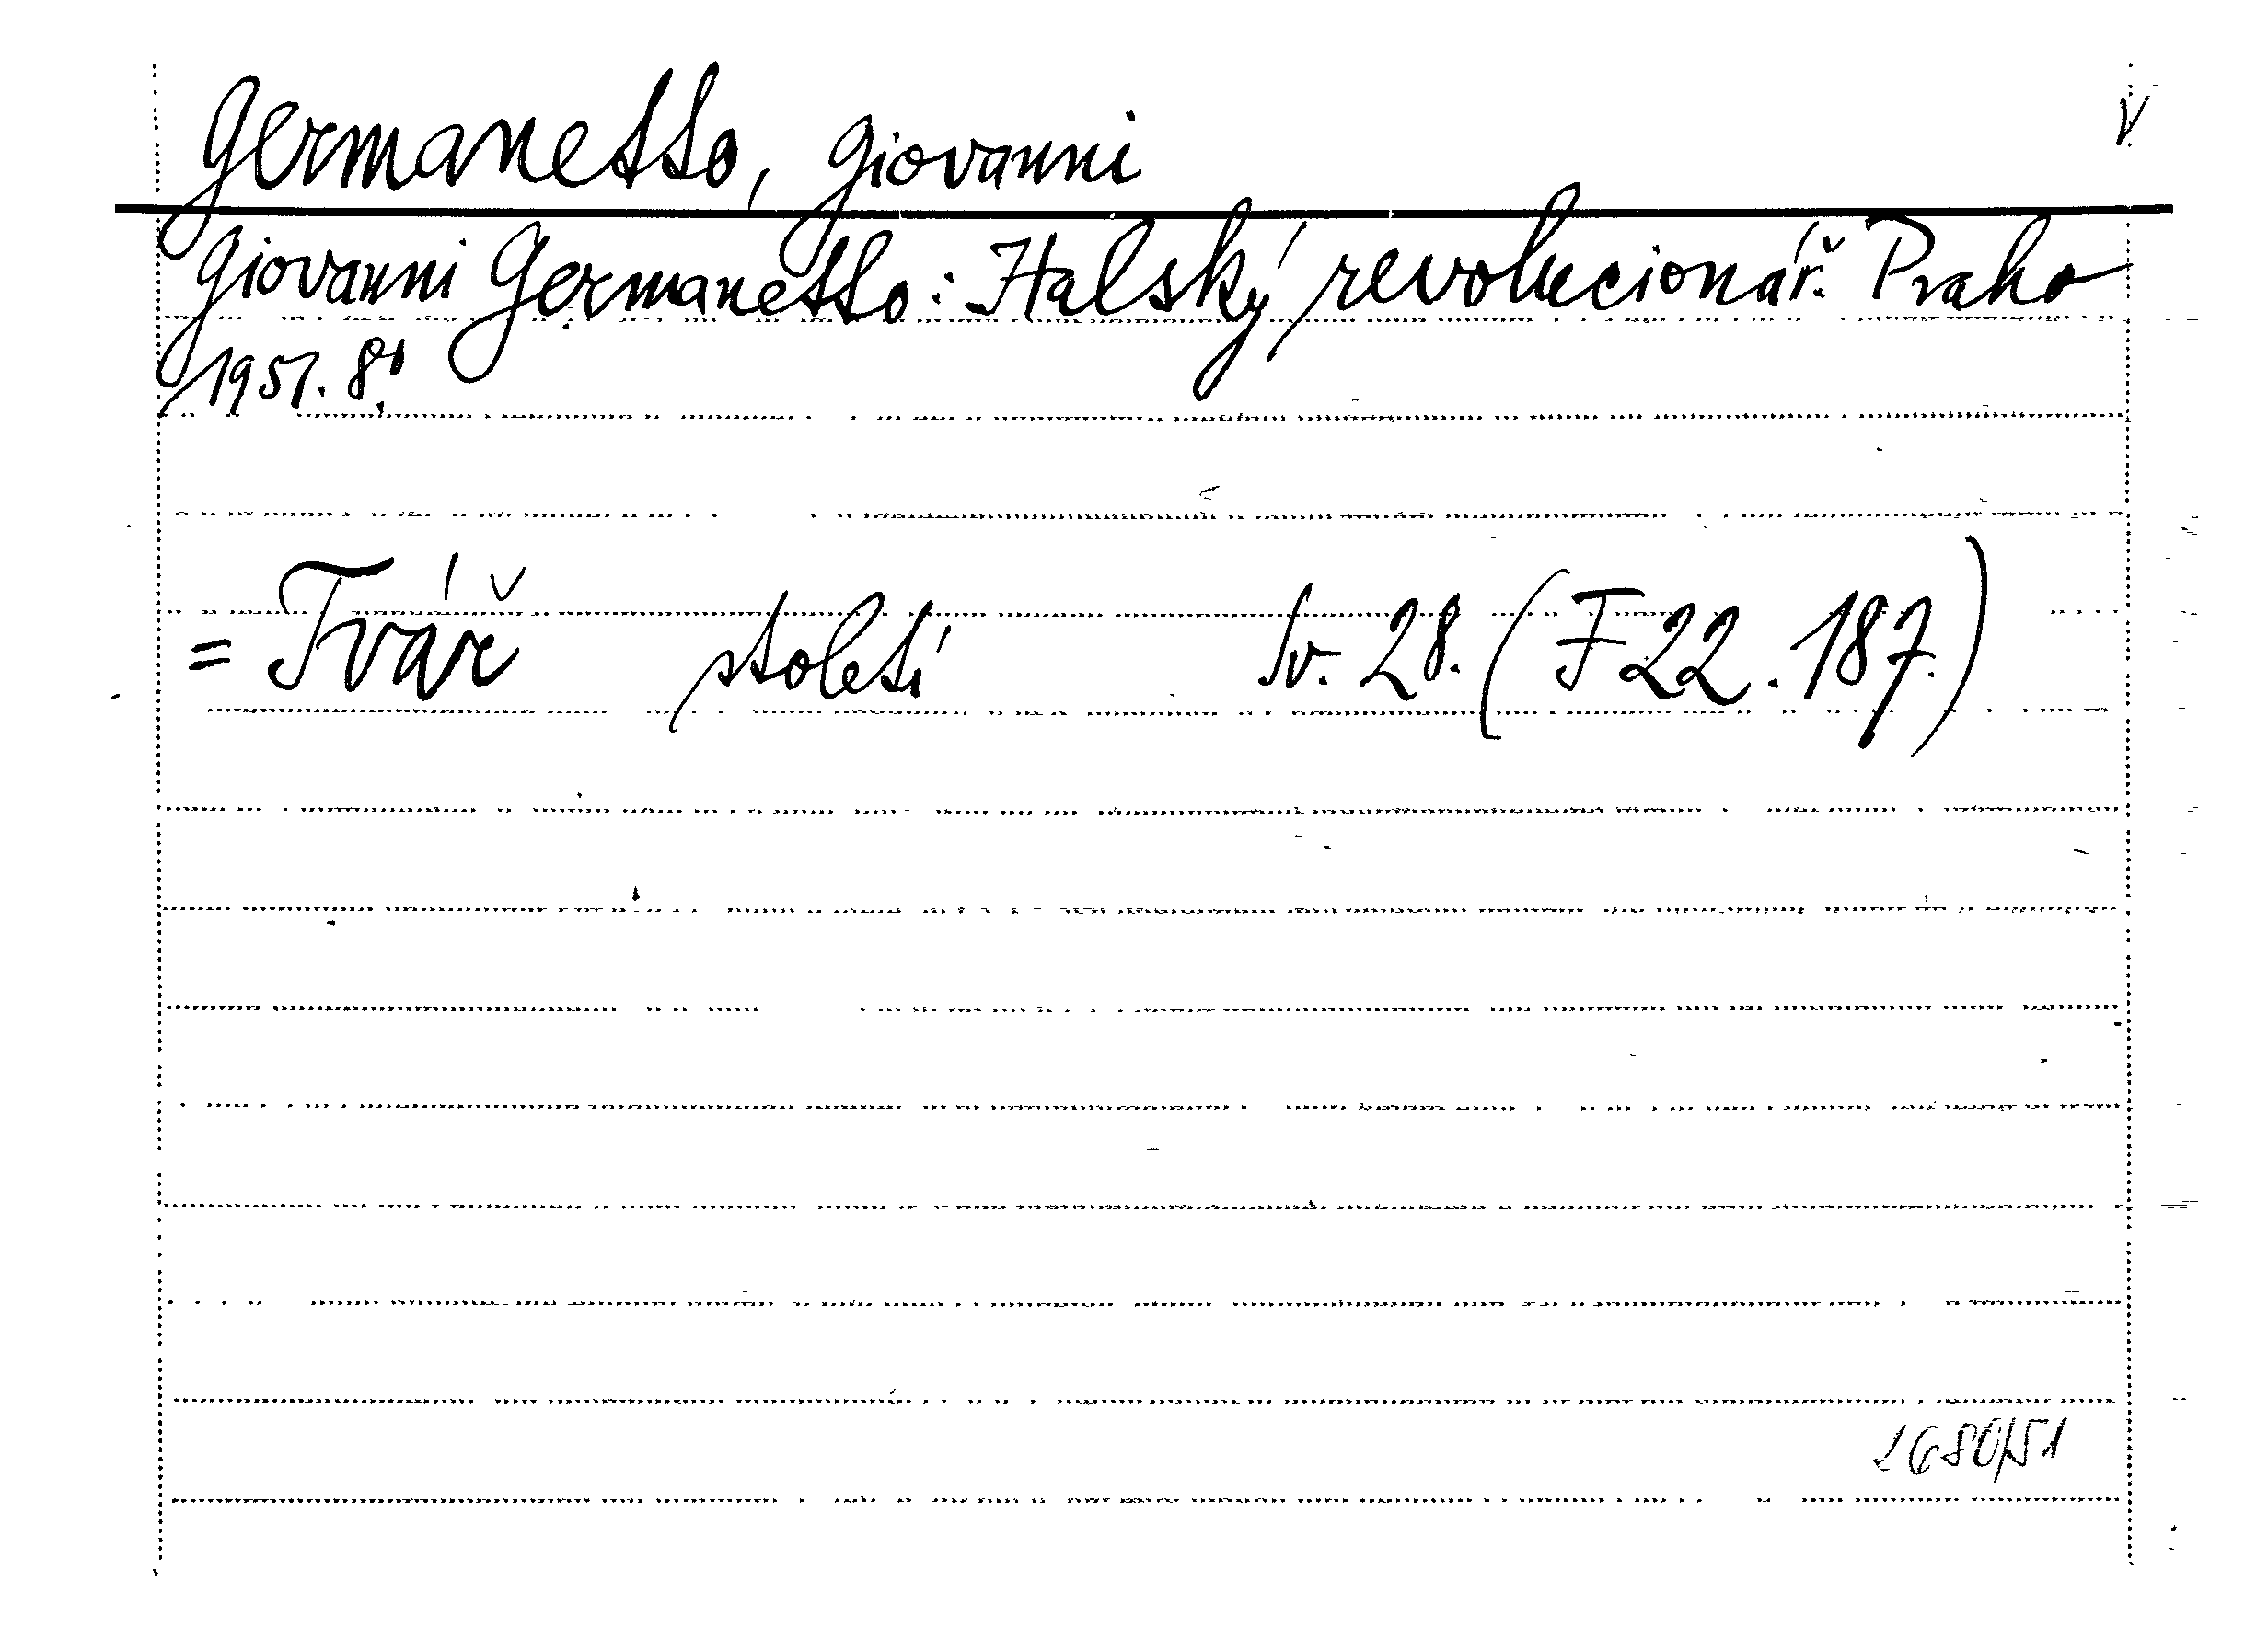 Germanetto, Giovanni V
Giovanni Germanetto: Italský revolucionář. Praha
1951. 8°.
= Tvář století Sv. 28. (F 22.187.)
2680/51